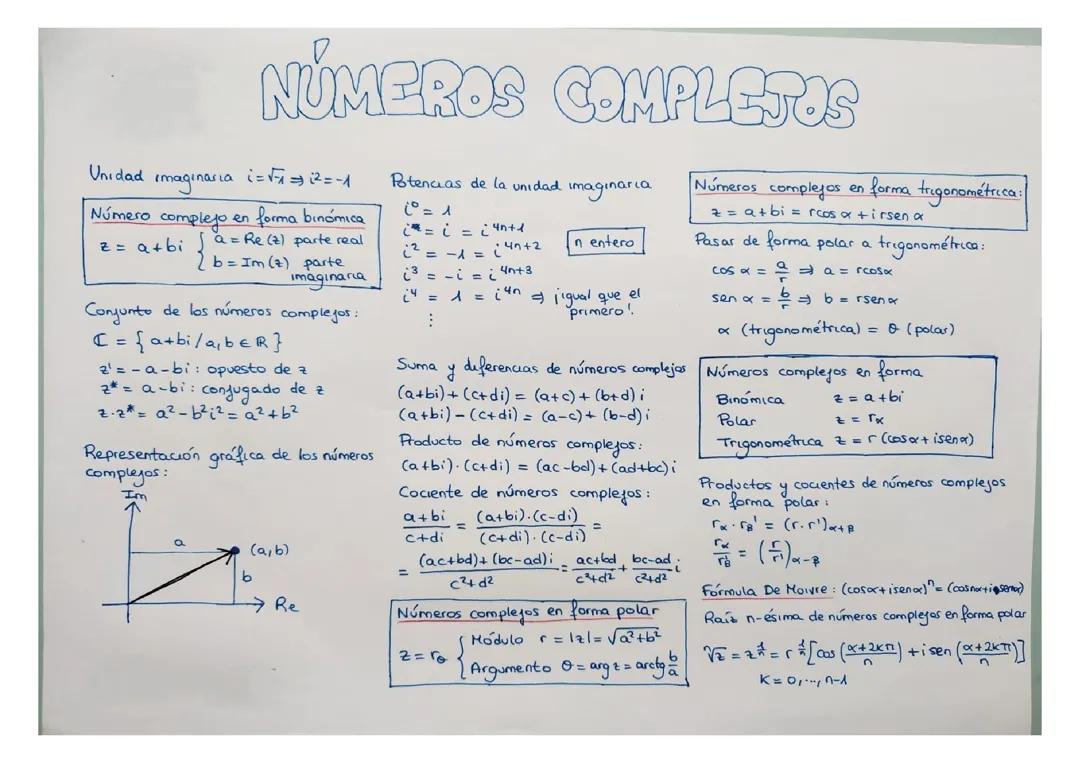 NÚMEROS COMPLEJOS
Unidad imaginaria i=√-1 ⇒ i²=-1
Número complejo en forma binómica
z = a+bi { a = Re(z) parte real
b = Im(z) parte
imaginaria
Conjunto de los números complejos:
ℂ = {a+bi/a,b ∈ ℝ}
z' = -a-bi: opuesto de z
z* = a-bi: conjugado de z
z·z* = a²-b²i² = a²+b²
Representación gráfica de los números
complejos:
Im
a
(a,b)
b
Re
Potencias de la unidad imaginaria
i⁰ = 1
i = i = i⁴ⁿ⁺¹
i² = -1 = i⁴ⁿ⁺²
n entero
i³ = -i = i⁴ⁿ⁺³
i⁴ = 1 = i⁴ⁿ ⇒ ¡igual que el
primero!
⋮
Suma y diferencias de números complejos
(a+bi)+(c+di) = (a+c)+(b+d)i
(a+bi)-(c+di) = (a-c)+(b-d)i
Producto de números complejos:
(a+bi)·(c+di) = (ac-bd)+(ad+bc)i
Cociente de números complejos:
a+bi/c+di = (a+bi)·(c-di)/(c+di)·(c-di) =
= (ac+bd)+(bc-ad)i/c²+d² = ac+bd/c²+d² + bc-ad/c²+d² i
Números complejos en forma polar
z = r_θ { Módulo r = |z| = √a²+b²
Argumento θ = arg z = arctg b/a
Números complejos en forma trigonométrica:
z = a+bi = rcos α + i rsen α
Pasar de forma polar a trigonométrica:
cos α = a/r ⇒ a = rcosα
sen α = b/r ⇒ b = rsenα
α (trigonométrica) = θ (polar)
Números complejos en forma
Binómica z = a+bi
Polar z = r_α
Trigonométrica z = r (cosα + isenα)
Productos y cocientes de números complejos
en forma polar:
r_α · r_β' = (r·r')_α+β
r_α/r'_β = (r/r')_α-β
Fórmula De Moivre: (cosα+isenα)ⁿ = (cosnα+isennα)
Raíz n-ésima de números complejos en forma polar
ⁿ√z = z^1/n = r^1/n [cos (α+2kπ/n) + i sen (α+2kπ/n)]
K = 0,..., n-1